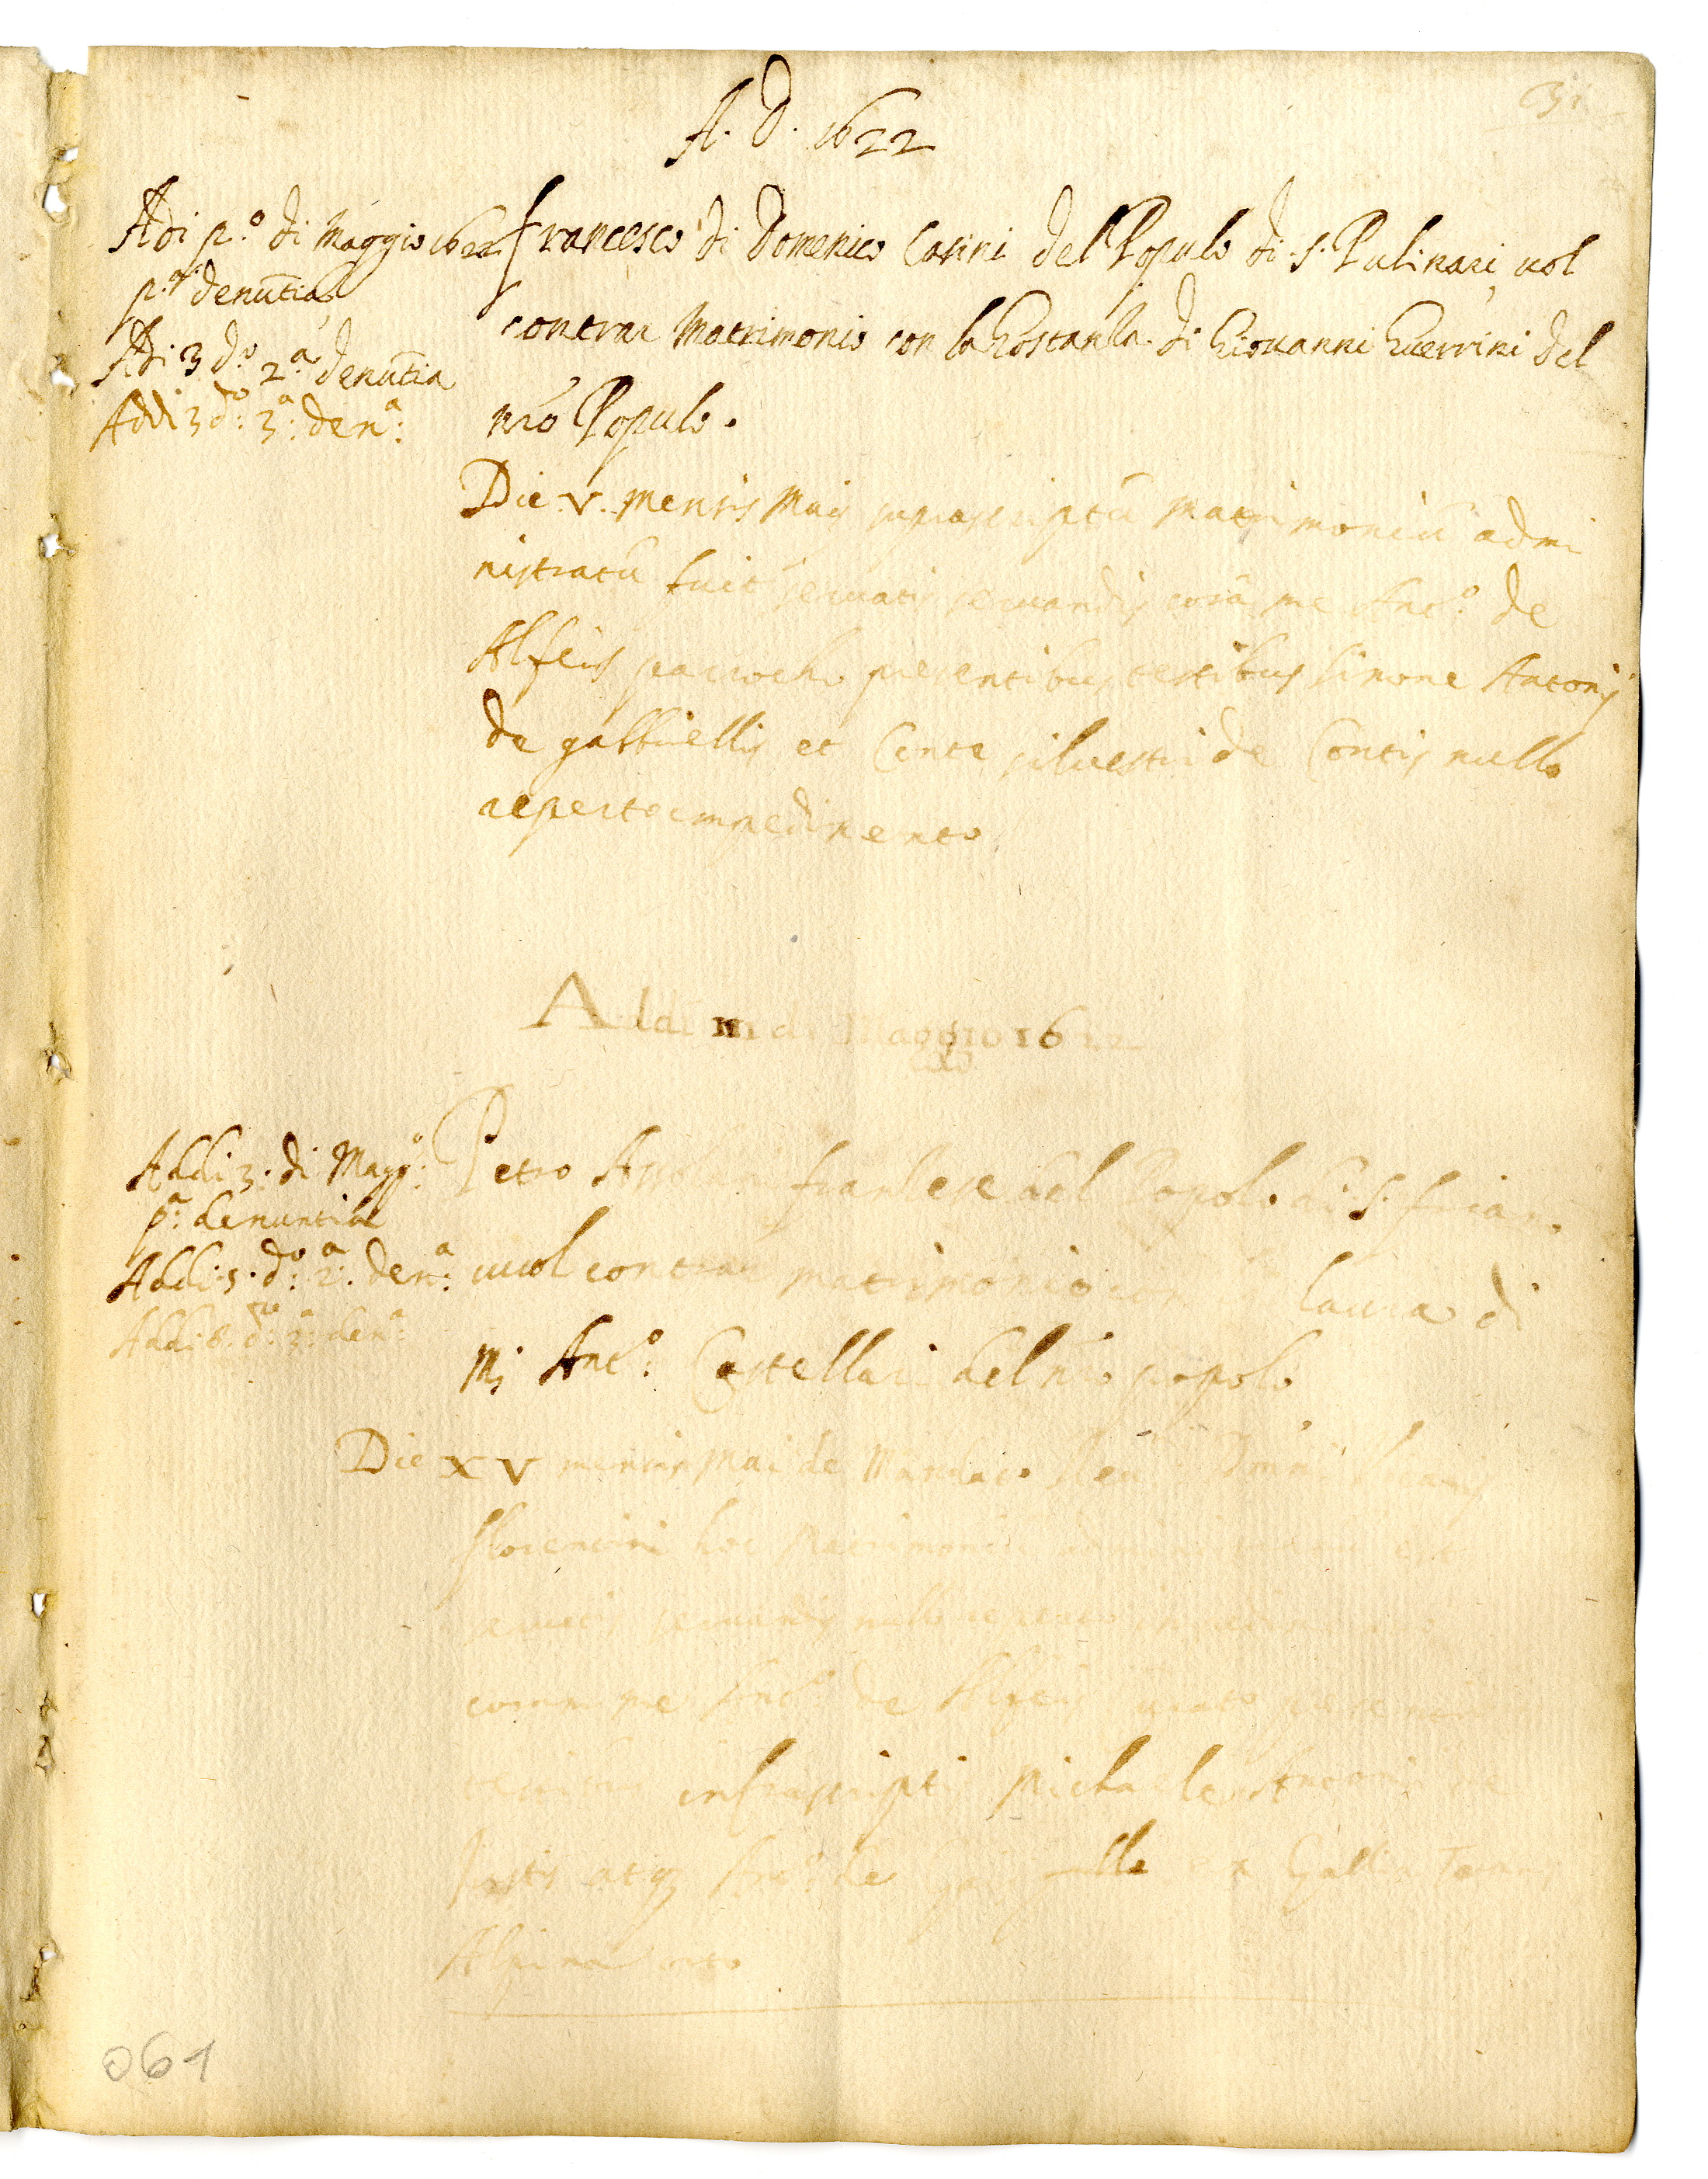 A. D. 1622
Adi p.º di Maggio 1622
p.ª denũtia
Adi 3 d.º 2.ª denũtia
Addi 3 d.º: 3.ª: den.ª:
francesco di Domenico Casini del Populo di S. Pulinari, uol
contrar Matrimonio con la Gostanza di Giouanni Guerrini del
nro Populo.
Die V. mensis Maij suprascriptũ Matrimoniũ admi
nistratũ fuit seruatis seruandis corã me Ant.º de
Alfeis parrocho presentibus testibus Simone Antonij
de gabbriellis et Cente siluestri de Contis nullo
reperto impedimento
Addi III di Maggio 1622
Addi 3. di Magg.º:
p.ª: denuntia
Addi 5. d.º: 2.ª: den.ª:
Addi 8. d.º: 3.ª: den.ª:
Petro franzese del Popolo di S. frian.
uuol contrar matrimonio con laura di
Mj Ant.º: Castellari del nrõ popolo
Die XV mensis Mai de Mandato
florentini hoc Matrimoniũ
seruatis seruandis nullo reperto impedimento
coram me Ant.º de Alfeis
infrascriptis Michaele Antonij de
Justis atq3 de ex Gallia
061